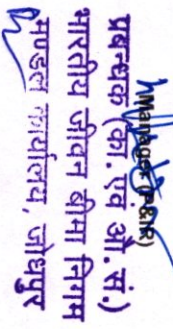 Manager (P&IR)
प्रबन्धक (का. एवं औ. सं.)
भारतीय जीवन बीमा निगम
मण्डल कार्यालय, जोधपुर